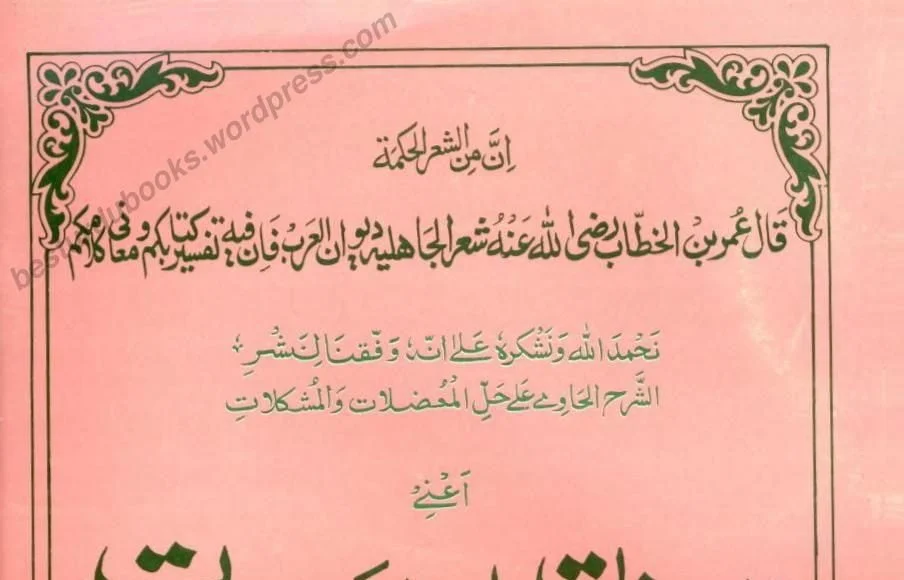 besturdubooks.wordpress.com
اِنَّ مِنَ الشعر الحكمة
قَالَ عُمر بنُ الخطّاب رضى اللهُ عَنْهُ شعر الجَاهلية ديوان العَرَب فَاِن فيه تفسير كتابكم ومعانى كلامكم
نَحْمدَ اللهَ وَنَشْكرهٗ عَلىٰ انّهٗ وَفّقنَا لِنَشْرِ
الشَّرح الحَاوِىْ عَلىٰ حَلِّ المُعْضلات وَالمُشكلاتِ
اَعْنِىْ